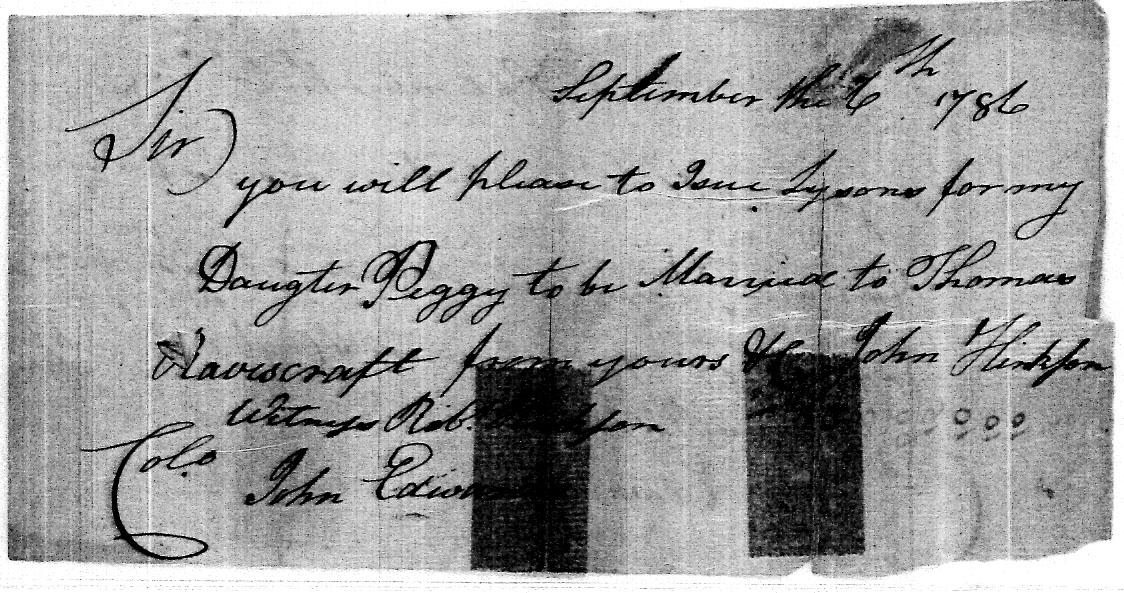 September the 6th 1786
Sir
you will please to Isue Lysons for my
Daugter Peggy to be Married to Thomas
Ravescraft from yours &c John Hinkson
Witness Rob. Hinkson
Colo
John Edwards